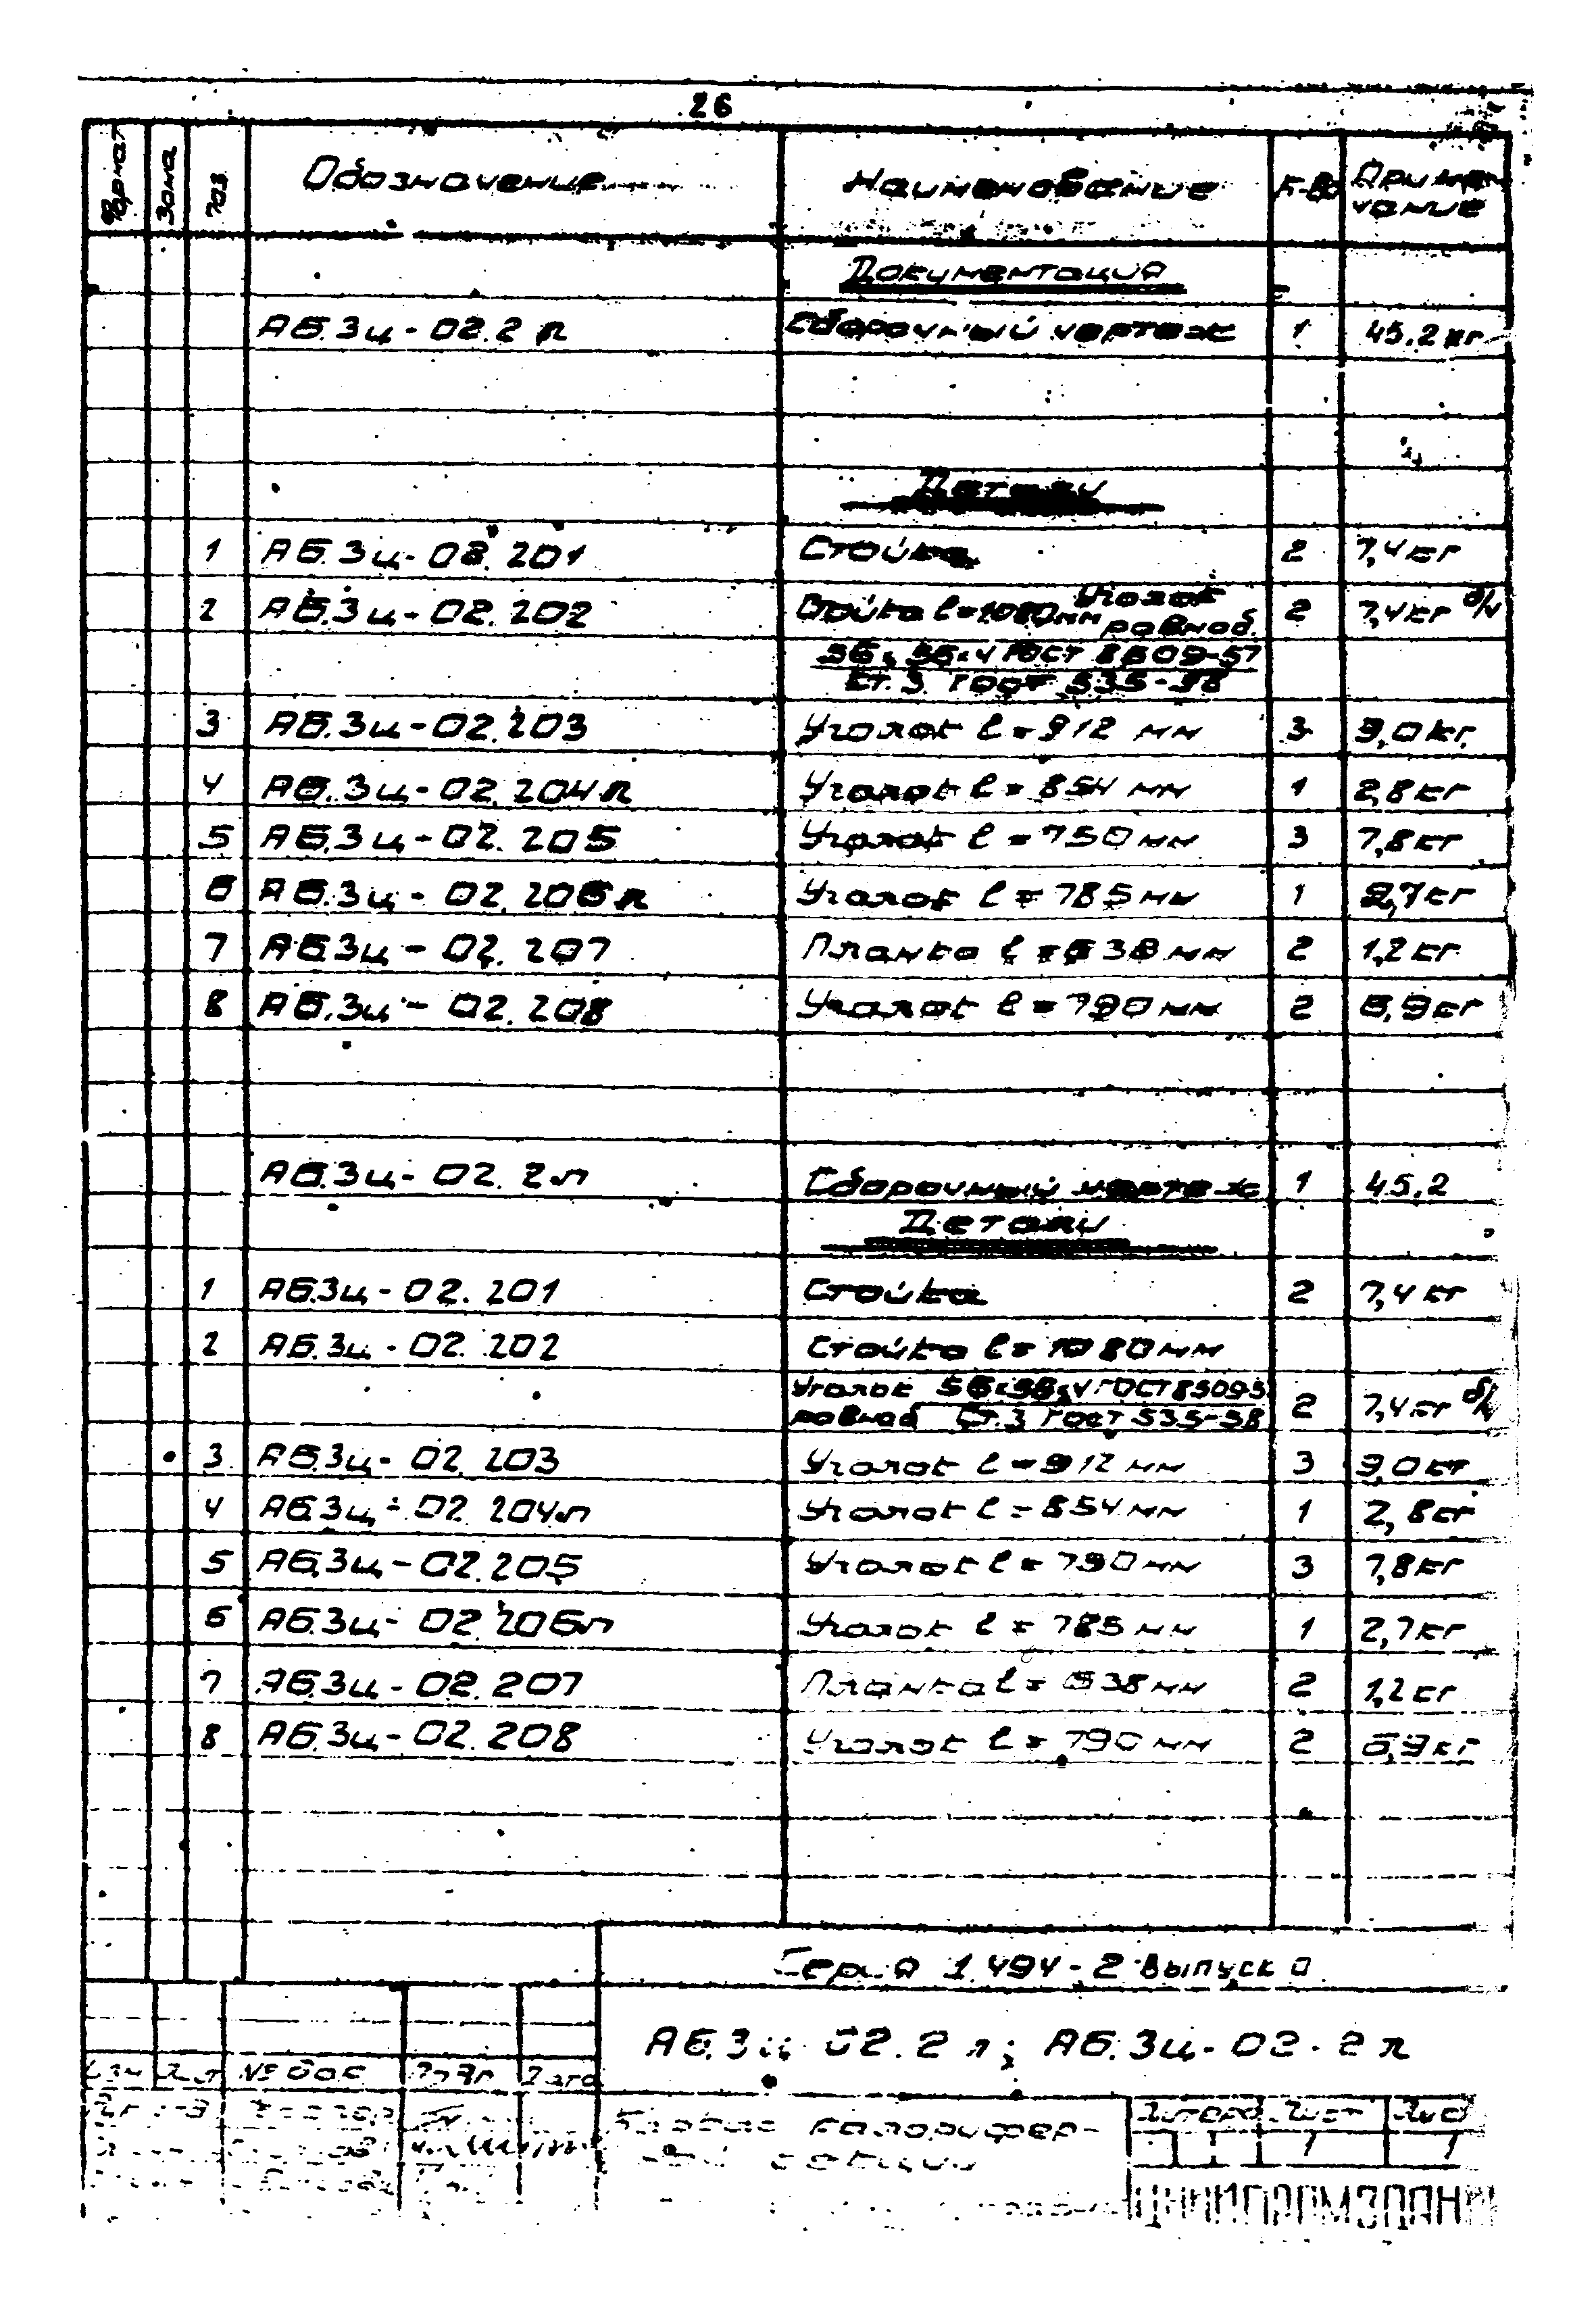 26
Формат Зона Поз. Обозначение Наименование К-во Примечание
Документация
АБ.3ц-02.2 п Сборочный чертеж 1 45.2 кг
Детали
1 АБ.3ц-02.201 Стойка 2 7,4 кг
2 АБ.3ц-02.202 Стойка ℓ=1080мм Уголок равноб. 2 7,4 кг б/ч
56×56×4 ГОСТ 8509-57
Ст.3 ГОСТ 535-58
3 АБ.3ц-02.203 Уголок ℓ=912 мм 3 9,0 кг
4 АБ.3ц-02.204п Уголок ℓ=854 мм 1 2,8 кг
5 АБ.3ц-02.205 Уголок ℓ=790 мм 3 7,8 кг
6 АБ.3ц-02.206п Уголок ℓ=785 мм 1 2,7 кг
7 АБ.3ц-02.207 Планка ℓ=638 мм 2 1,2 кг
8 АБ.3ц-02.208 Уголок ℓ=790 мм 2 6,9 кг
АБ.3ц-02.2л Сборочный чертеж 1 45.2
Детали
1 АБ.3ц-02.201 Стойка 2 7,4 кг
2 АБ.3ц-02.202 Стойка ℓ=1080 мм
Уголок 56×56×4 ГОСТ 8509-5
равноб Ст.3 ГОСТ 535-58 2 7,4 кг б/ч
3 АБ.3ц-02.203 Уголок ℓ=912 мм 3 9,0 кг
4 АБ.3ц-02.204л Уголок ℓ=854 мм 1 2,8 кг
5 АБ.3ц-02.205 Уголок ℓ=790 мм 3 7,8 кг
6 АБ.3ц-02.206л Уголок ℓ=785 мм 1 2,7 кг
7 АБ.3ц-02.207 Планка ℓ=638 мм 2 1,2 кг
8 АБ.3ц-02.208 Уголок ℓ=790 мм 2 6,9 кг
Серия 1.494-2 выпуск 0
АБ.3ц 02.2 л; АБ.3ц-02.2 п
Изм Лист № док Подп Дата
калорифер-
ной секции
Литера Лист
1 1
ЦНИИПРОМЗДАНИ